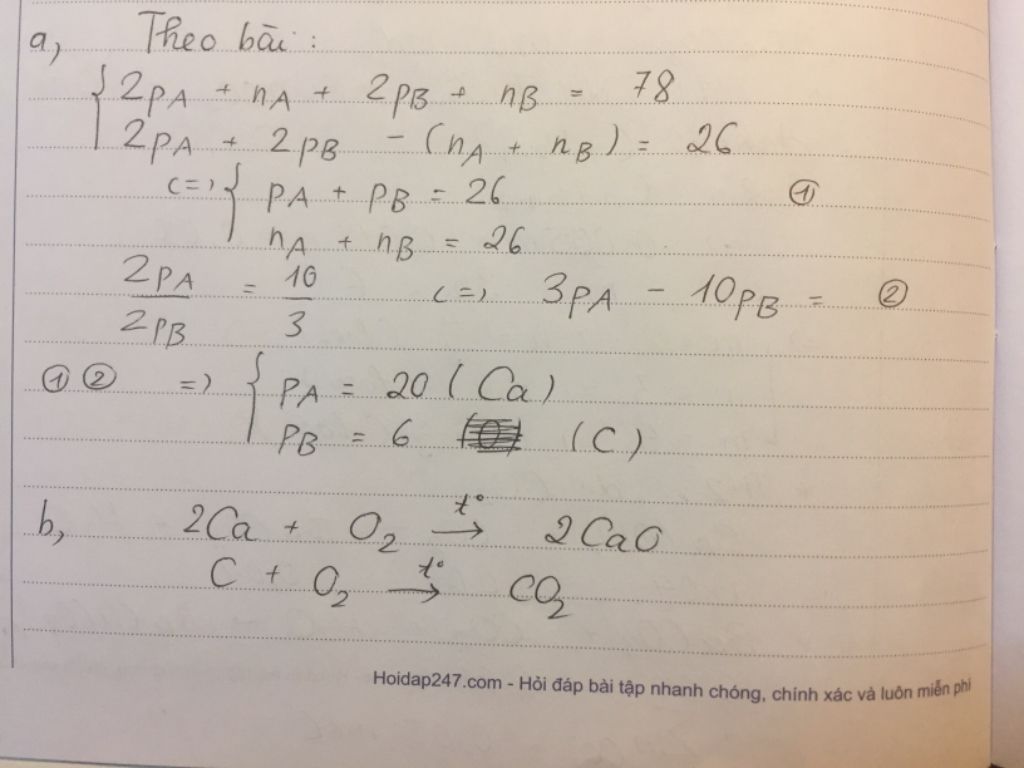 a, Theo bài :
2pA + nA + 2pB + nB = 78
2pA + 2pB - (nA + nB) = 26
<=> pA + pB = 26 ①
nA + nB = 26
2pA / 2pB = 10 / 3 <=> 3pA - 10pB = ②
① ② => pA = 20 (Ca)
pB = 6 (C)
b, 2Ca + O₂ t°→ 2CaO
C + O₂ t°→ CO₂
Hoidap247.com - Hỏi đáp bài tập nhanh chóng, chính xác và luôn miễn phí